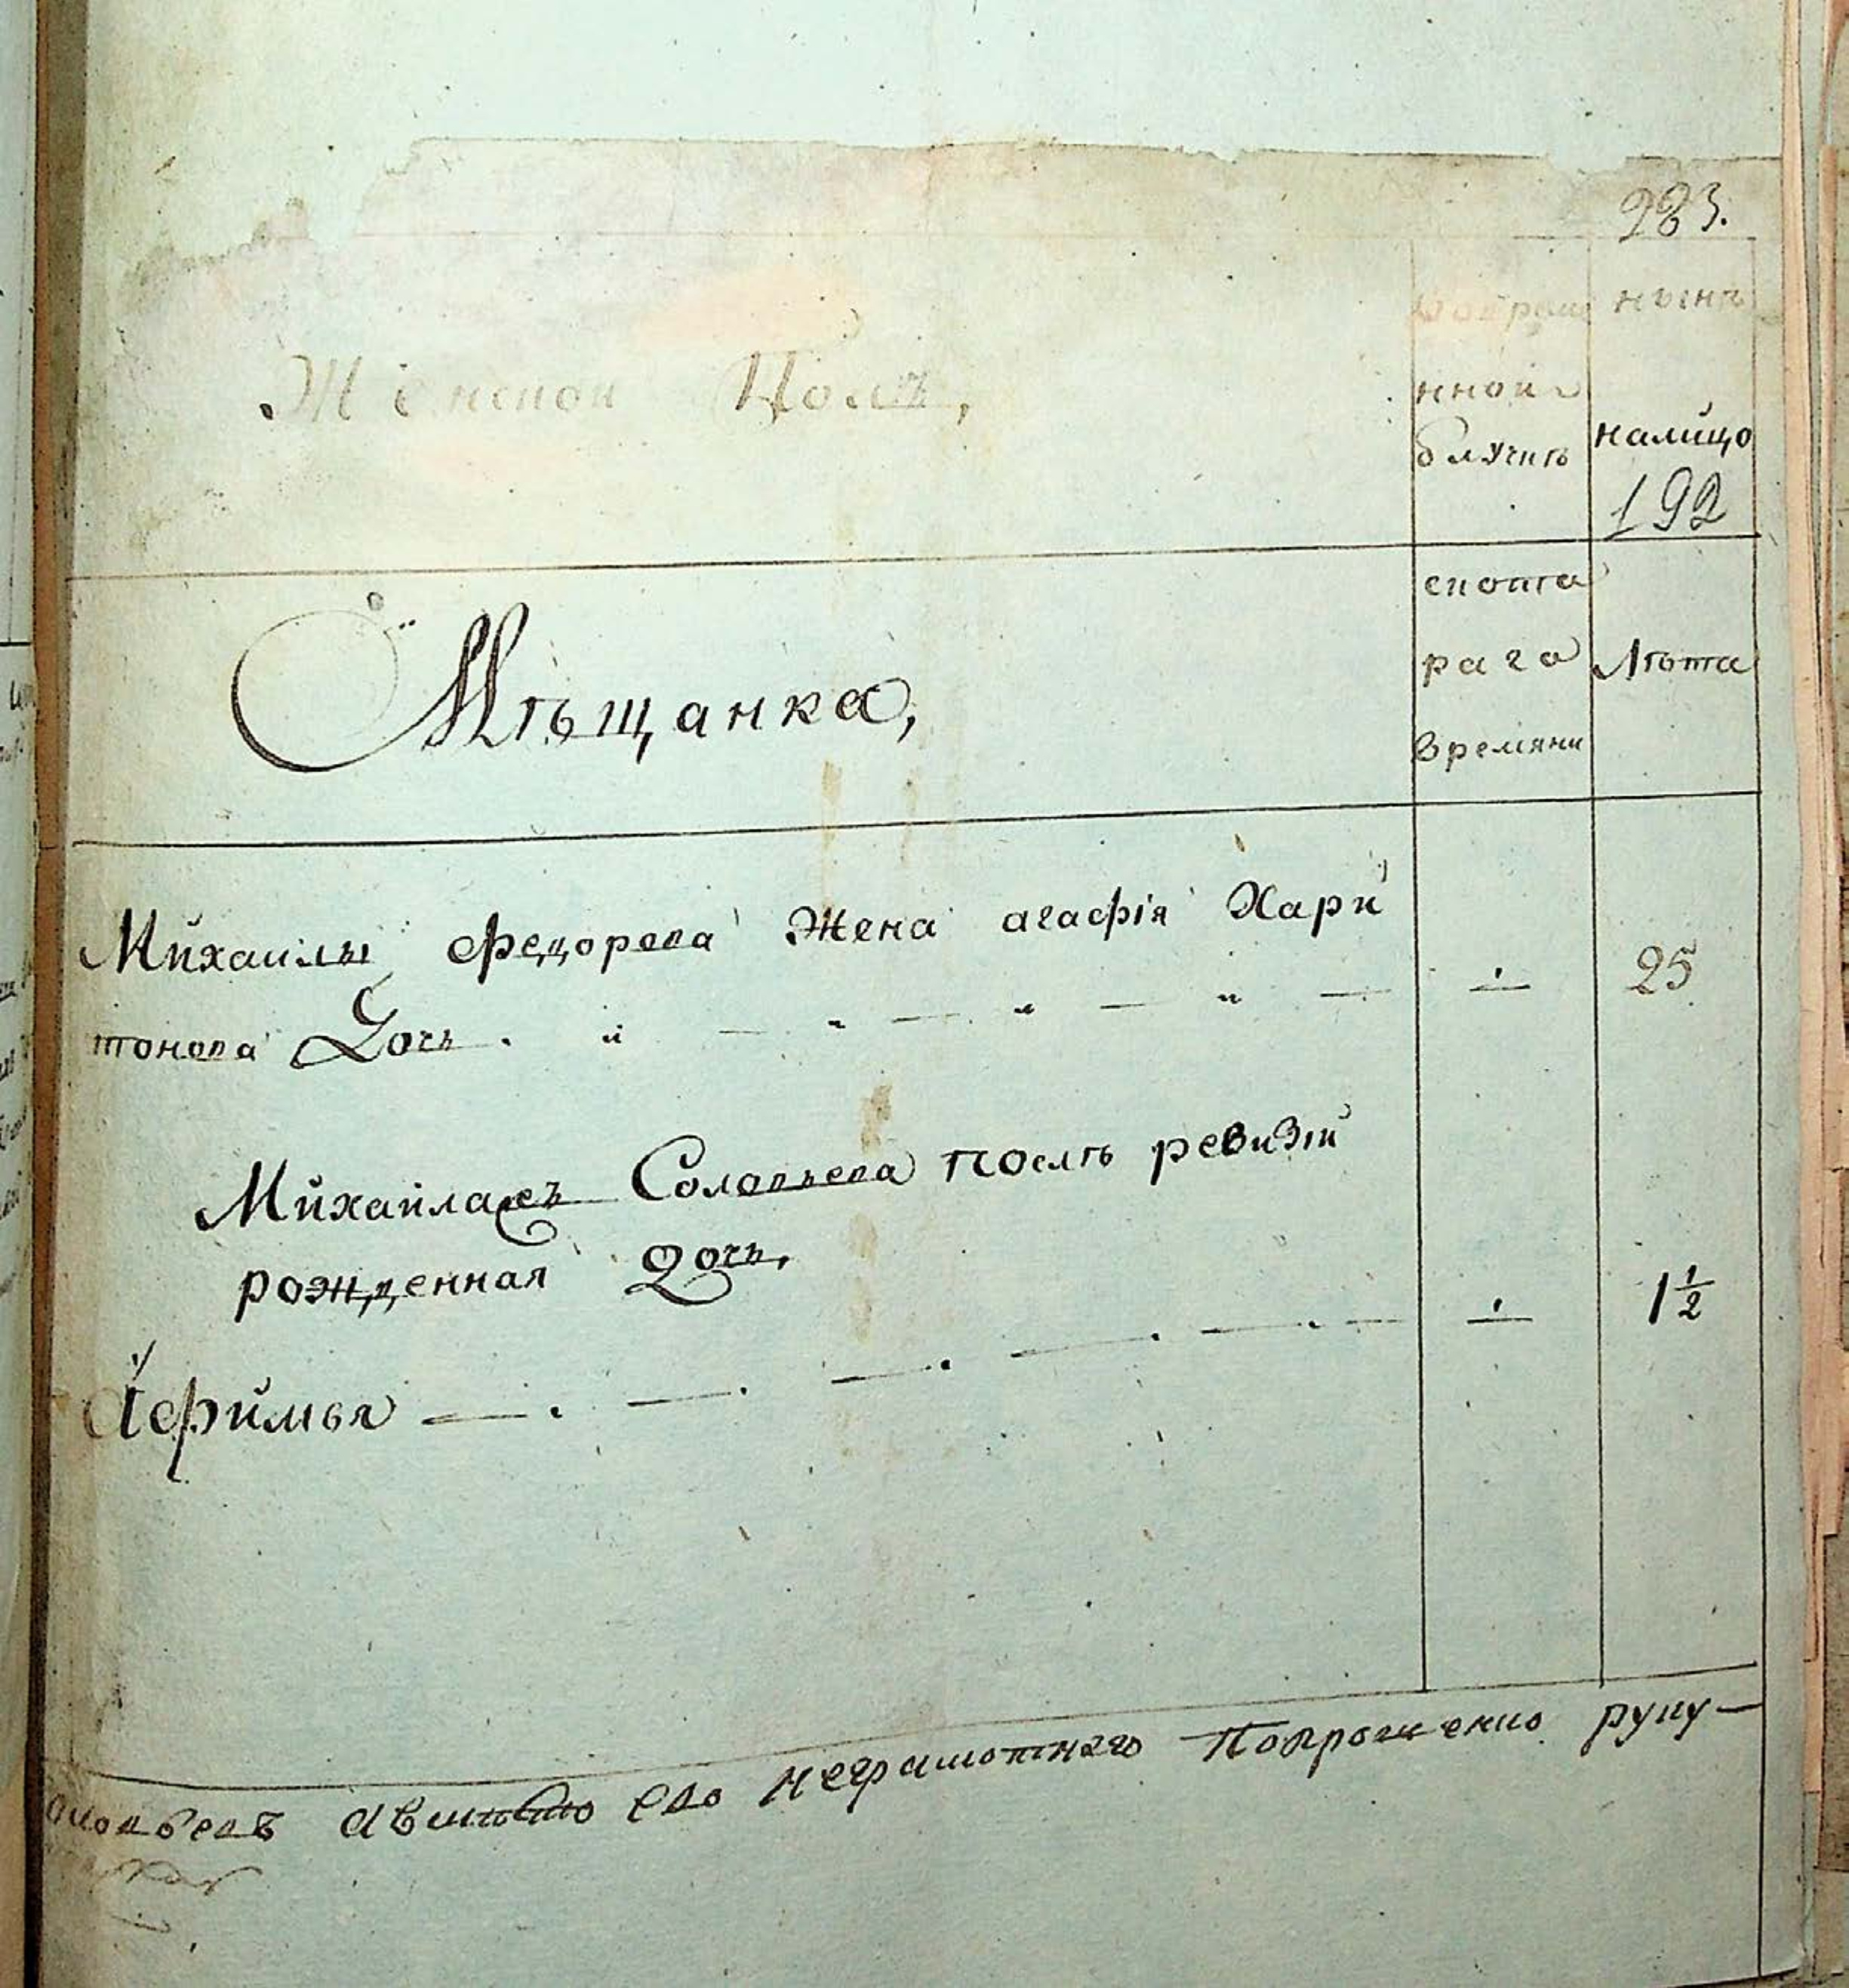 283.
Женской Полъ,
Вовреме
нной
ѿлучкѣ
нынѣ
налицо
192
Мѣщанка,
скотта
раго
времяни
Лѣта
Михаилы Федорова Жена агафія Хари
тонова Дочь 25
Михайлаже Соловьева послѣ ревизіи
рожденная Дочь,
Афимья 1½
оловьевъ авместо ево неграмотнаго Попрошению руку